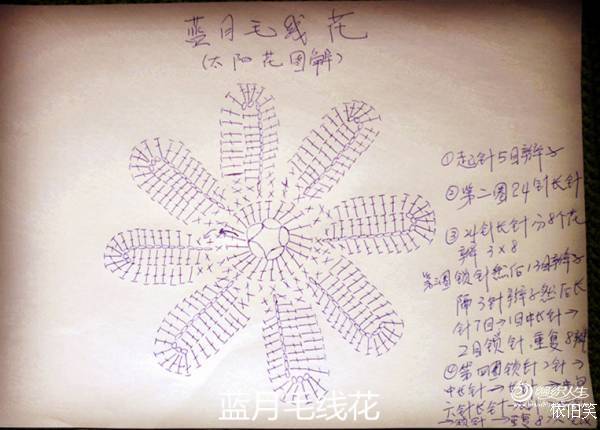 蓝月毛线花
(太阳花图解)
①起针5目辫子
②第二圈24针长针
③24针长针分8个花
瓣 3×8
第三圈锁针然后13目辫子
隔3针辫子然后长
针7目→1目中长针→
2目锁针.重复8瓣
④第四圈锁针2针→
中长针→
六针长针→
蓝月毛线花
依旧笑